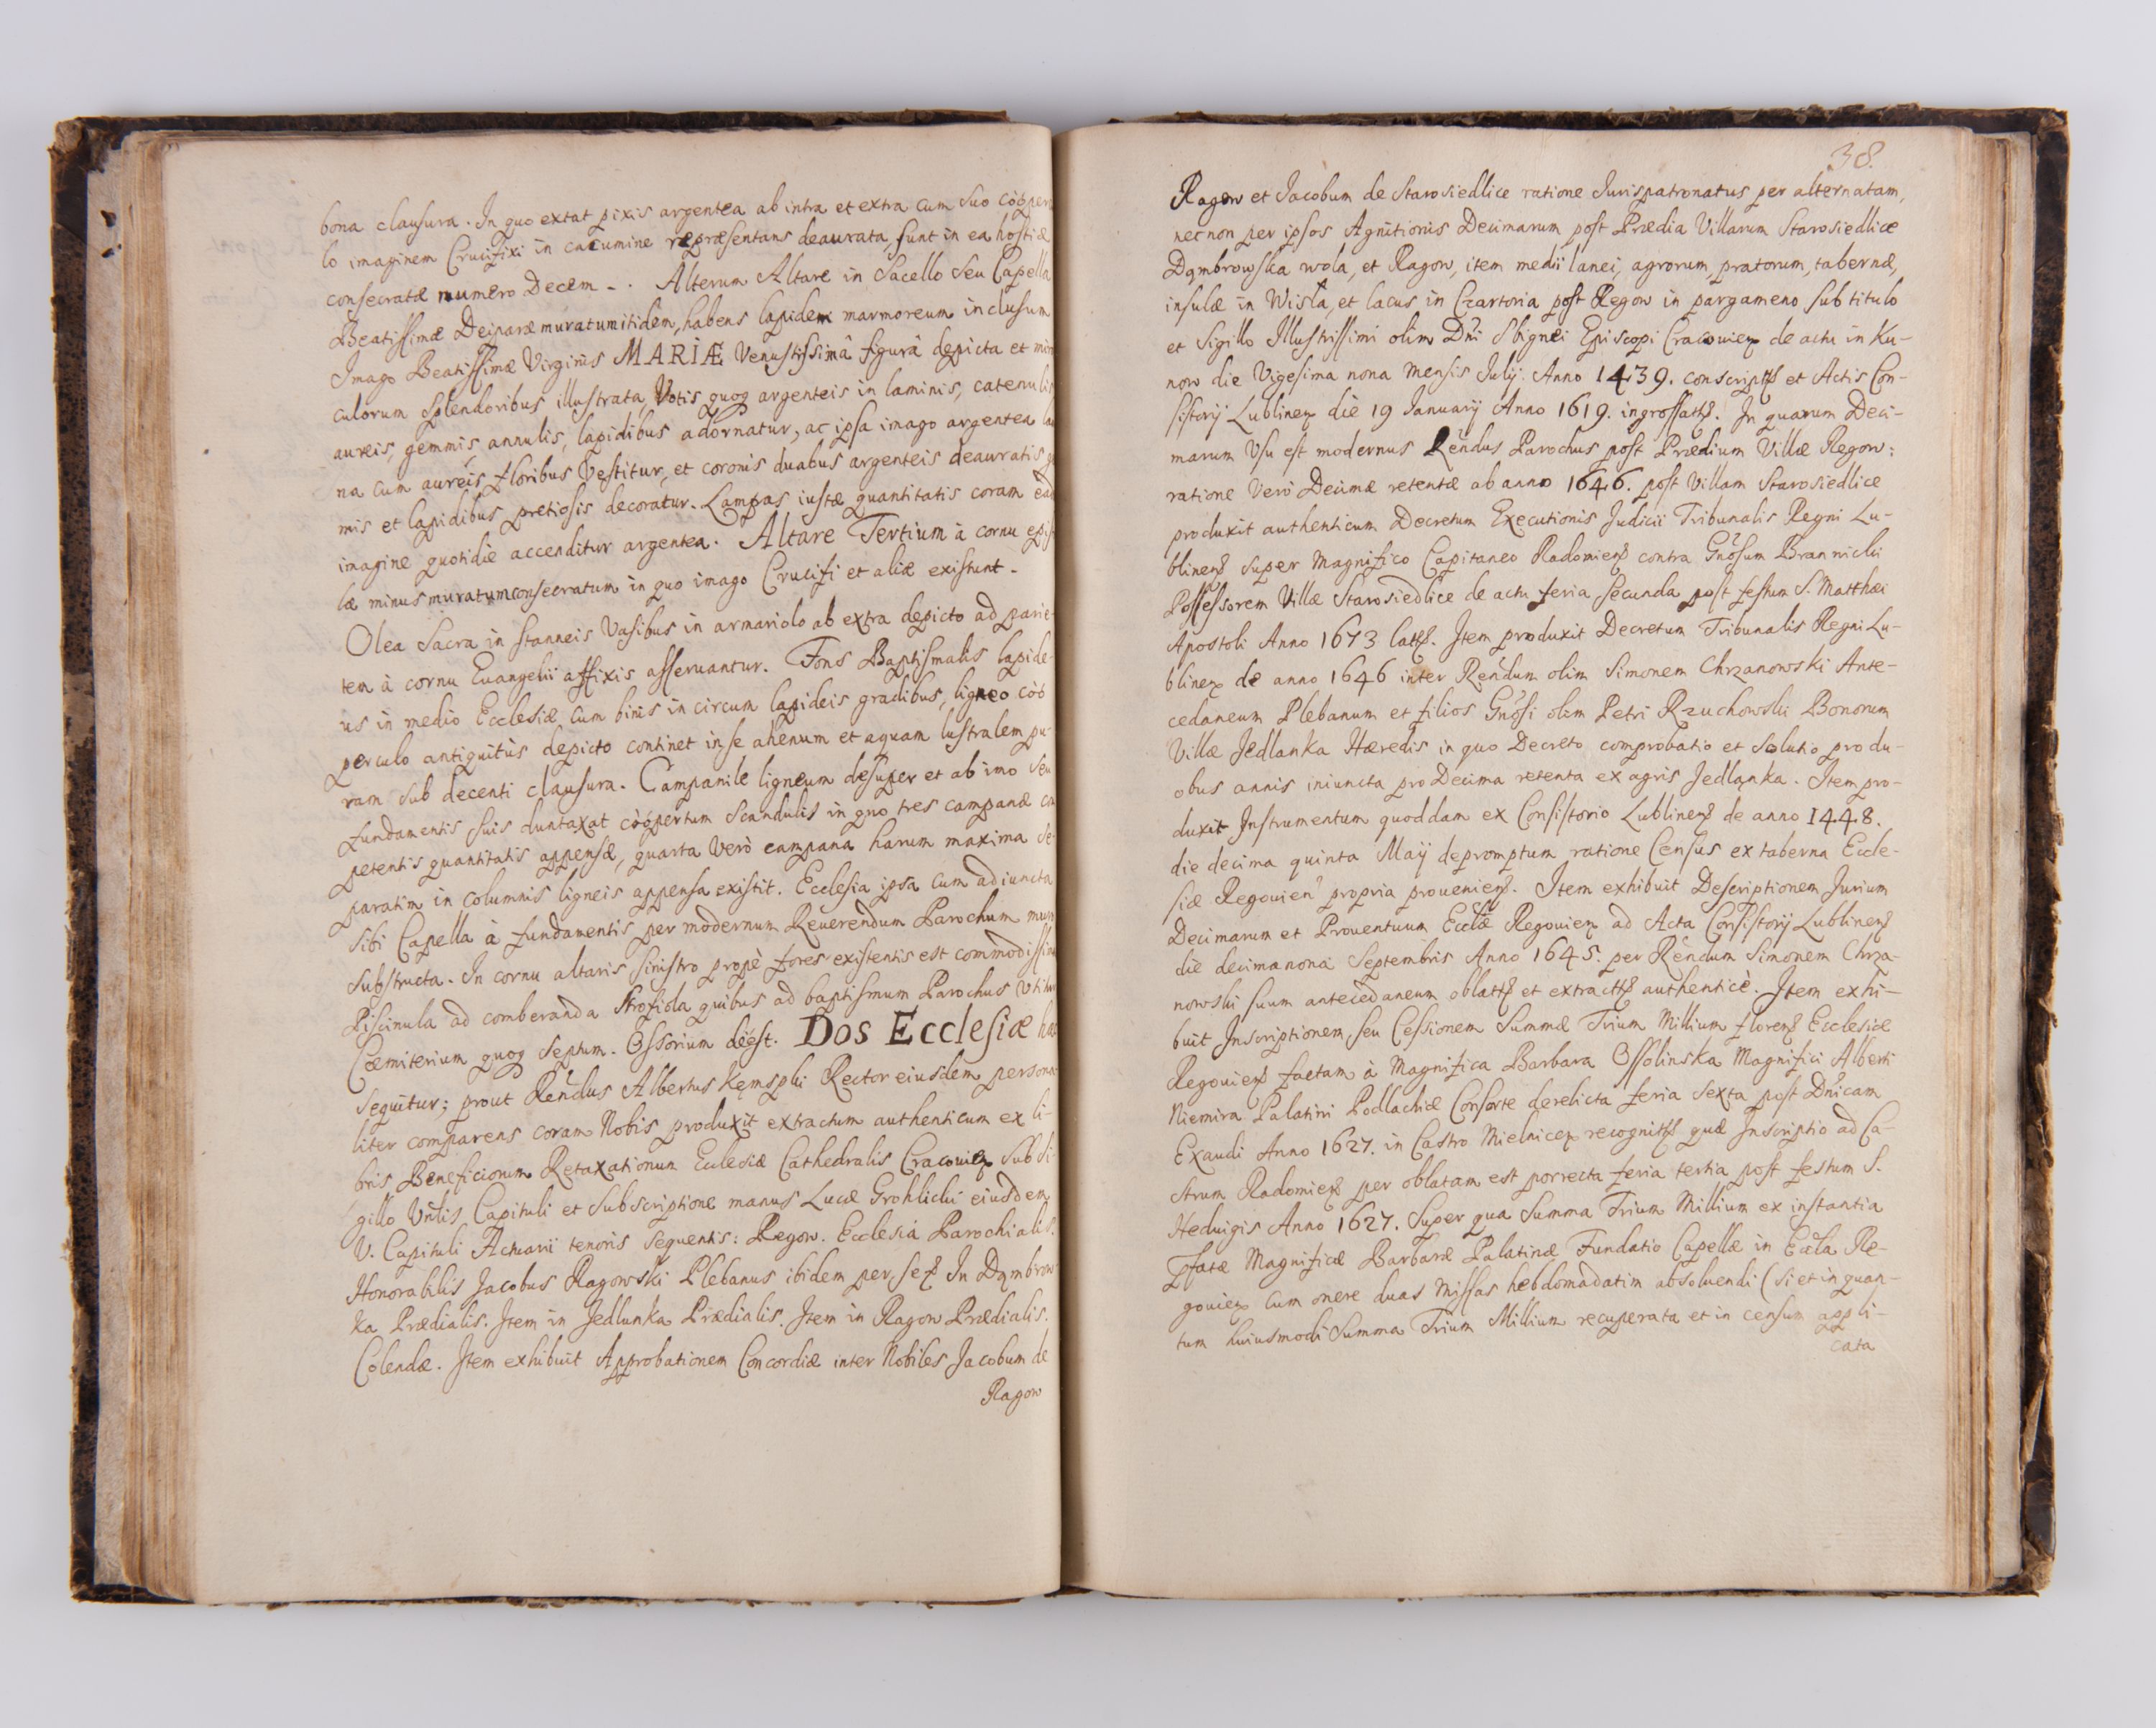 bona clausura. In quo extat pixis argentea ab intra et extra cum suo coöper
lo imaginem Crucifixi in cacumine repræsentans deaurata, sunt in ea hostiæ
consecratæ numero Decem -. Alterum Altare in Sacello seu Capella
Beatissimæ Deiparæ muratum itidem, habens lapidem marmoreum inclusum
Imago Beatissimæ Virginis MARIÆ Venustissimâ figurâ depicta et mira
culorum splendoribus illustrata, Votis quoq argenteis in laminis, catenulis
aureis, gemmis, annulis, lapidibus adornatur, ac ipsa imago argentea la
na cum aureis floribus Vestitur, et coronis duabus argenteis deauratis ge
mis et lapidibus pretiosis decoratur. Lampas iustæ quantitatis coram ead
imagine quotidie accenditur argentea. Altare Tertium à cornu epist
læ minus muratum consecratum in quo imago Crucifi et aliæ existunt.
Olea Sacra in stanneis Vasibus in armariolo ab extra depicto ad parie-
tem à cornu Euangelii affixis asseruantur. Fons Baptismalis lapide-
us in medio Ecclesiæ cum binis in circum lapideis gradibus, ligneo coö
perculo antiquitùs depicto continet in se ahenum et aquam lustralem pu-
ram sub decenti clausura. Campanile ligneum desuper et ab imo seu
fundamentis suis duntaxat coöpertum Scandulis in quo tres campanæ com
petentis quantitatis appensæ, quarta Verò campana harum maxima se-
paratim in columnis ligneis appensa existit. Ecclesia ipsa cum adiuncta
sibi Capella à fundamentis per modernum Reuerendum Parochum muro
substructa. In cornu altaris sinistro propè fores existentis est commodissima
Piscinula ad comberanda strofiola quibus ad baptismum Parochus Vtitur
Cœmiterium quoq septum. Ossorium deest. Dos Ecclesiæ hæc
sequitur; prout Rendus Albertus Kęmspki Rector eiusdem persona-
liter comparens coram Nobis produxit extractum authenticum ex li-
bris Beneficiorum Retaxationum Ecclesiæ Cathedralis Cracouien sub Si-
gillo Vnlis Capituli et Subscriptione manus Lucæ Grohlicki eiusdem
V. Capituli Actuarii tenoris sequentis: Regow. Ecclesia Parochialis.
Honorabilis Jacobus Ragowski Plebanus ibidem per se In Dąmbrow
ka Prædialis. Item in Jedlunka Prædialis. Item in Ragow Prædialis.
Colendæ. Item exhibuit Approbationem Concordiæ inter Nobiles Jacobum de
Ragow
38.
Ragow et Jacobum de Starosiedlice ratione Jurispatronatus per alternatam,
necnon per ipsos Agnitionis Decimarum post Prædia Villarum Starosiedlice
Dąmbrowska wola, et Ragow, item medii lanei, agrorum, pratorum, tabernæ,
insulæ in Wisła, et lacus in Czartoria post Regow in pargameno sub titulo
et Sigillo Illustrissimi olim Dni Sbignei Episcopi Cracouien de actu in Ku-
now die Vigesima nona Mensis Julij Anno 1439. conscriptis et Actis Con-
sistorij Lublinen die 19 Januarij Anno 1619. ingrossatis. In quarum Deci-
marum Vsu est modernus Rendus Parochus post Prædium Villæ Regow:
ratione Verò Decimæ retentæ ab anno 1646. post Villam Starosiedlice
produxit authenticum Decretum Executionis Judicii Tribunalis Regni Lu-
blinen super Magnifico Capitaneo Radomien contra Gnosum Brannicki
Possessorem Villæ Starosiedlice de actu feria secunda post festum S. Matthæi
Apostoli Anno 1673 latis. Item produxit Decretum Tribunalis Regni Lu-
blinen de anno 1646 inter Rendum olim Simonem Chrzanowski Ante-
cedaneum Plebanum et filios Gnosi olim Petri Rzuchowski Bonorum
Villæ Jedlanka Hæredis in quo Decreto comprobatio et solutio pro du-
obus annis iniuncta pro Decima retenta ex agris Jedląnka. Item pro-
duxit Instrumentum quoddam ex Consistorio Lublinen de anno 1448.
die decima quinta Maij depromptum ratione Census ex taberna Eccle-
siæ Regouien propria prouenien. Item exhibuit Descriptionem Jurium
Decimarum et Prouentuum Ecclæ Regouien ad Acta Consistorij Lublinen
die decimanona Septembris Anno 1645. per Rendum Simonem Chrza-
nowski suum antecedaneum oblatis et extractis authenticè. Item exhi-
buit Inscriptionem seu Cessionem Summæ Trium Millium floren Ecclesiæ
Regouien factam à Magnifica Barbara Ossolinska Magnifici Alberti
Niemira Palatini Podlachiæ Consorte derelicta feria sexta post Dnicam
Exaudi Anno 1627. in Castro Mielnicen recognitis quæ Inscriptio ad Ca-
strum Radomien per oblatam est porrecta feria tertia post festum S.
Heduigis Anno 1627. Super qua Summa Trium Millium ex instantia
Pfatæ Magnificæ Barbaræ Palatinæ Fundatio Capellæ in Eccla Re-
gouien cum onere duas Missas hebdomadatim absoluendi (si et in quan-
tum huiusmodi Summa Trium Millium recuperata et in censum appli-
cata